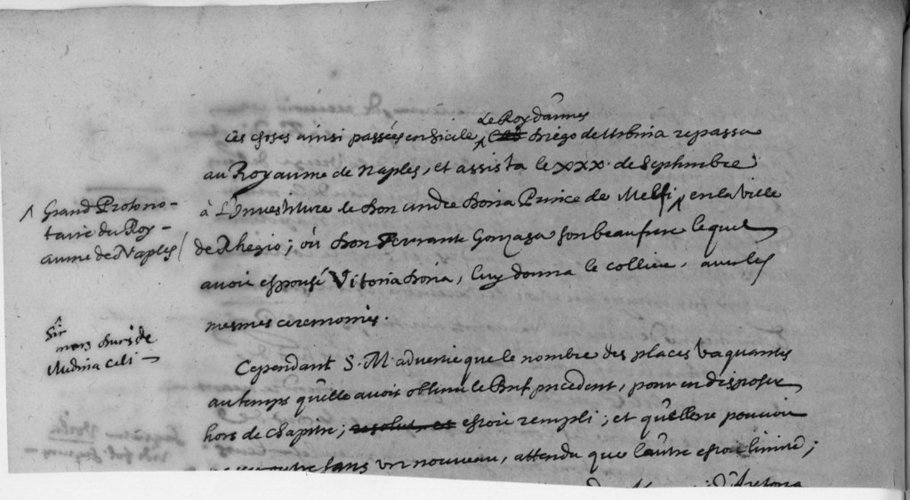 le Roy d'armes
Ces choses ainsi passées en Sicile, Diego de Urbina repassa
au Royaume de Naples, et assista le xxx. de Septembre
à L'Investiture de Don Andre Doria Prince de Melfi, en la ville
Grand Protono-
taire du Roy-
aume de Naples
de Rhegio; où Don Ferrante Gonzaga son beaufrere lequel
avoit espousé Vitoria Doria, luy donna le collier, avec les
mesmes ceremonies.
mons Duc de
Medina Celi
Cependant S. M. advertie que le nombre des places vaquantes
au temps qu'elle avoit obtenu le Bref precedent, pour en disposer
hors de Chapitre; resolut, et estoit rempli; et qu'elle ne pouvoit
sans un nouveau, attendu que l'autre estoit limité;